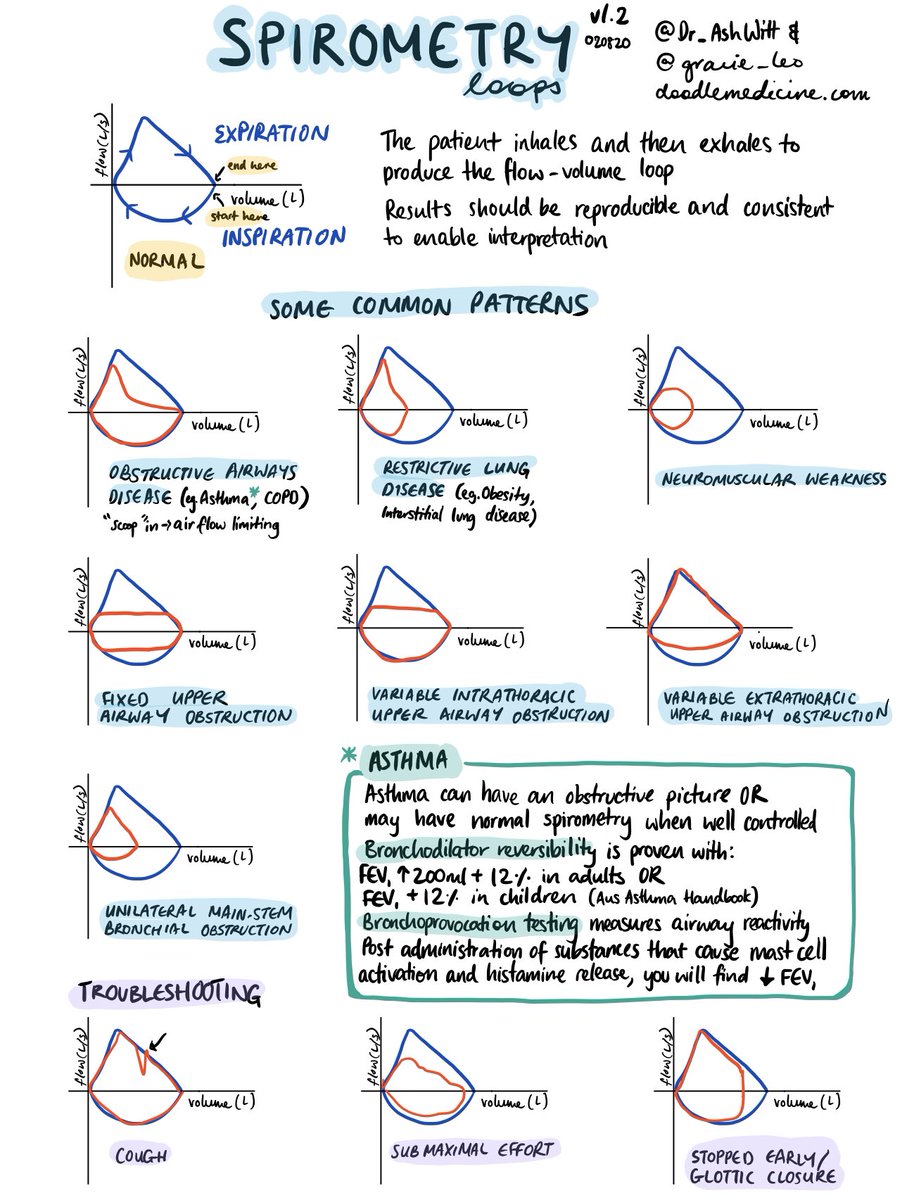 SPIROMETRY
loops
v1.2
020820
@Dr_AshWitt &
@gracie_leo
doodlemedicine.com
flow(L/s)
EXPIRATION
end here
volume (L)
start here
INSPIRATION
NORMAL
The patient inhales and then exhales to
produce the flow-volume loop
Results should be reproducible and consistent
to enable interpretation
SOME COMMON PATTERNS
flow(L/s)
volume (L)
OBSTRUCTIVE AIRWAYS
DISEASE (eg. Asthma*, COPD)
"scoop" in → air flow limiting
flow(L/s)
volume (L)
RESTRICTIVE LUNG
DISEASE (eg. Obesity,
Interstitial lung disease)
flow(L/s)
volume (L)
NEUROMUSCULAR WEAKNESS
flow(L/s)
volume (L)
FIXED UPPER
AIRWAY OBSTRUCTION
flow(L/s)
volume (L)
VARIABLE INTRATHORACIC
UPPER AIRWAY OBSTRUCTION
flow(L/s)
volume (L)
VARIABLE EXTRATHORACIC
UPPER AIRWAY OBSTRUCTION
flow(L/s)
volume (L)
UNILATERAL MAIN-STEM
BRONCHIAL OBSTRUCTION
* ASTHMA
Asthma can have an obstructive picture OR
may have normal spirometry when well controlled
Bronchodilator reversibility is proven with:
FEV₁ ↑ 200ml + 12% in adults OR
FEV₁ + 12% in children (Aus Asthma Handbook)
Bronchoprovocation testing measures airway reactivity
Post administration of substances that cause mast cell
activation and histamine release, you will find ↓ FEV₁
TROUBLESHOOTING
flow(L/s)
volume (L)
COUGH
flow(L/s)
volume (L)
SUBMAXIMAL EFFORT
flow(L/s)
volume (L)
STOPPED EARLY/
GLOTTIC CLOSURE